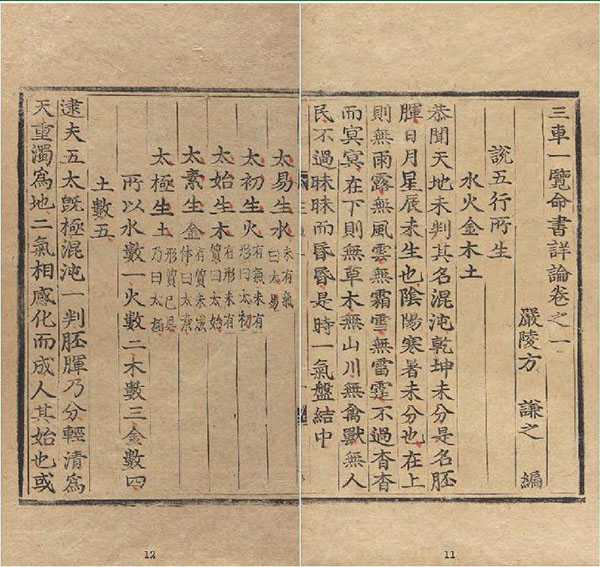 三車一覽命書詳論卷之一
嚴陵方 謙之 編
說五行所生
水火金木土
恭聞天地未判其名混沌乾坤未分是名胚
腪日月星辰未生也陰陽寒暑未分也在上
則無雨露無風雲無霜雪無雷霆不過杳杳
而冥冥在下則無草木無山川無禽獸無人
民不過昧昧而昏昏是時一氣盤結中
太易生水未有氣曰太易
太初生火有氣未有形曰太初
太始生木有形未有質曰太始
太素生金有質未成體曰太素
太極生土形質已具乃曰太極
所以水數一火數二木數三金數四
土數五
逮夫五太既極混沌一判胚腪乃分輕清爲
天重濁爲地二氣相感化而成人其始也或
12
11